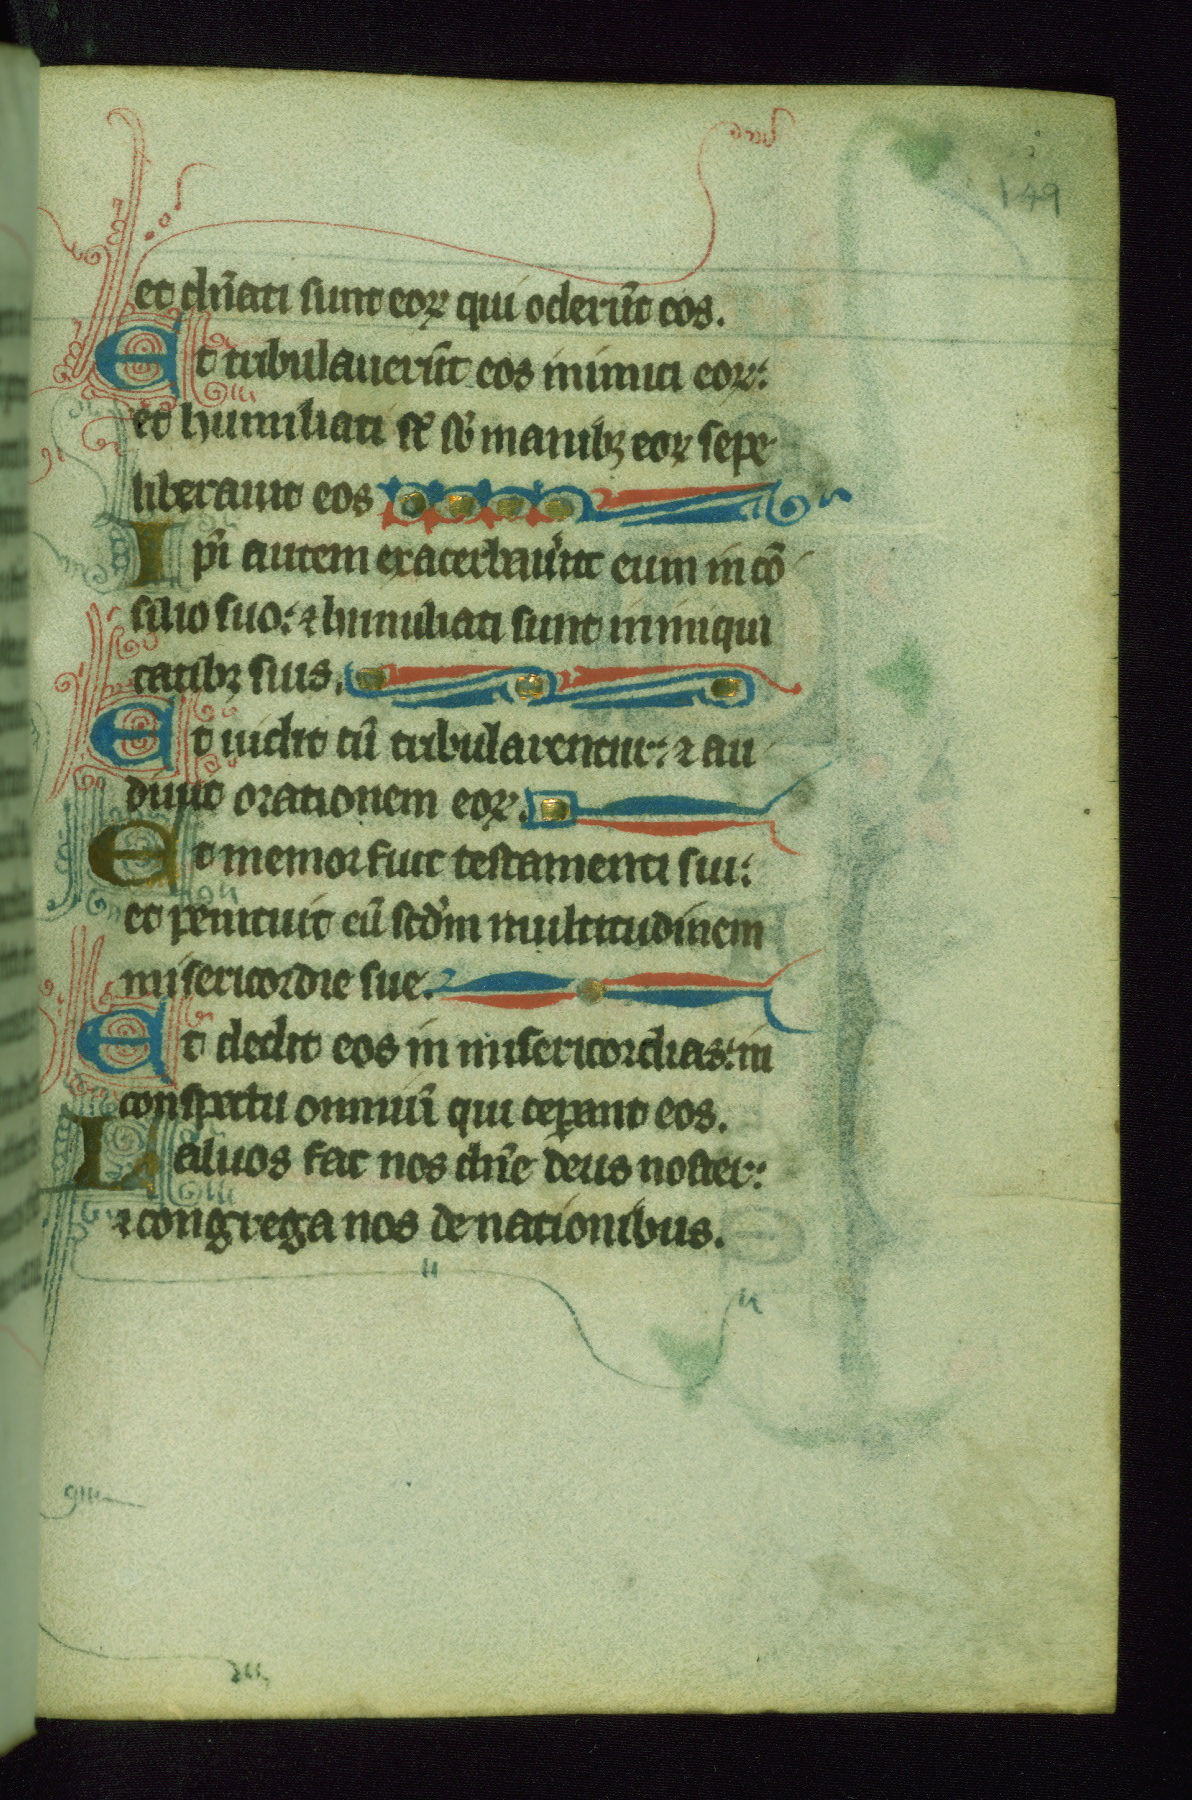 149
et dn̄ati sunt eoꝝ qui oderūt eos.
Et tribulauerūt eos inimici eoꝝ:
et humiliati st̄ sb̄ manibꝫ eoꝝ sepe
liberauit eos
Ipī autem exacerbauūt eum in cō
silio suo: ⁊ humiliati sunt in iniqui
tatibꝫ suis.
Et uidit cū tribularentur: ⁊ au
diuit orationem eoꝝ.
Et memor fuit testamenti sui:
et penituit eū scd̄m multitudinem
misericordie sue.
Et dedit eos in misericordias: in
conspectu omniū qui ceꝑant eos.
Laluos fac nos dn̄e deus noster:
⁊ congrega nos de nationibus.